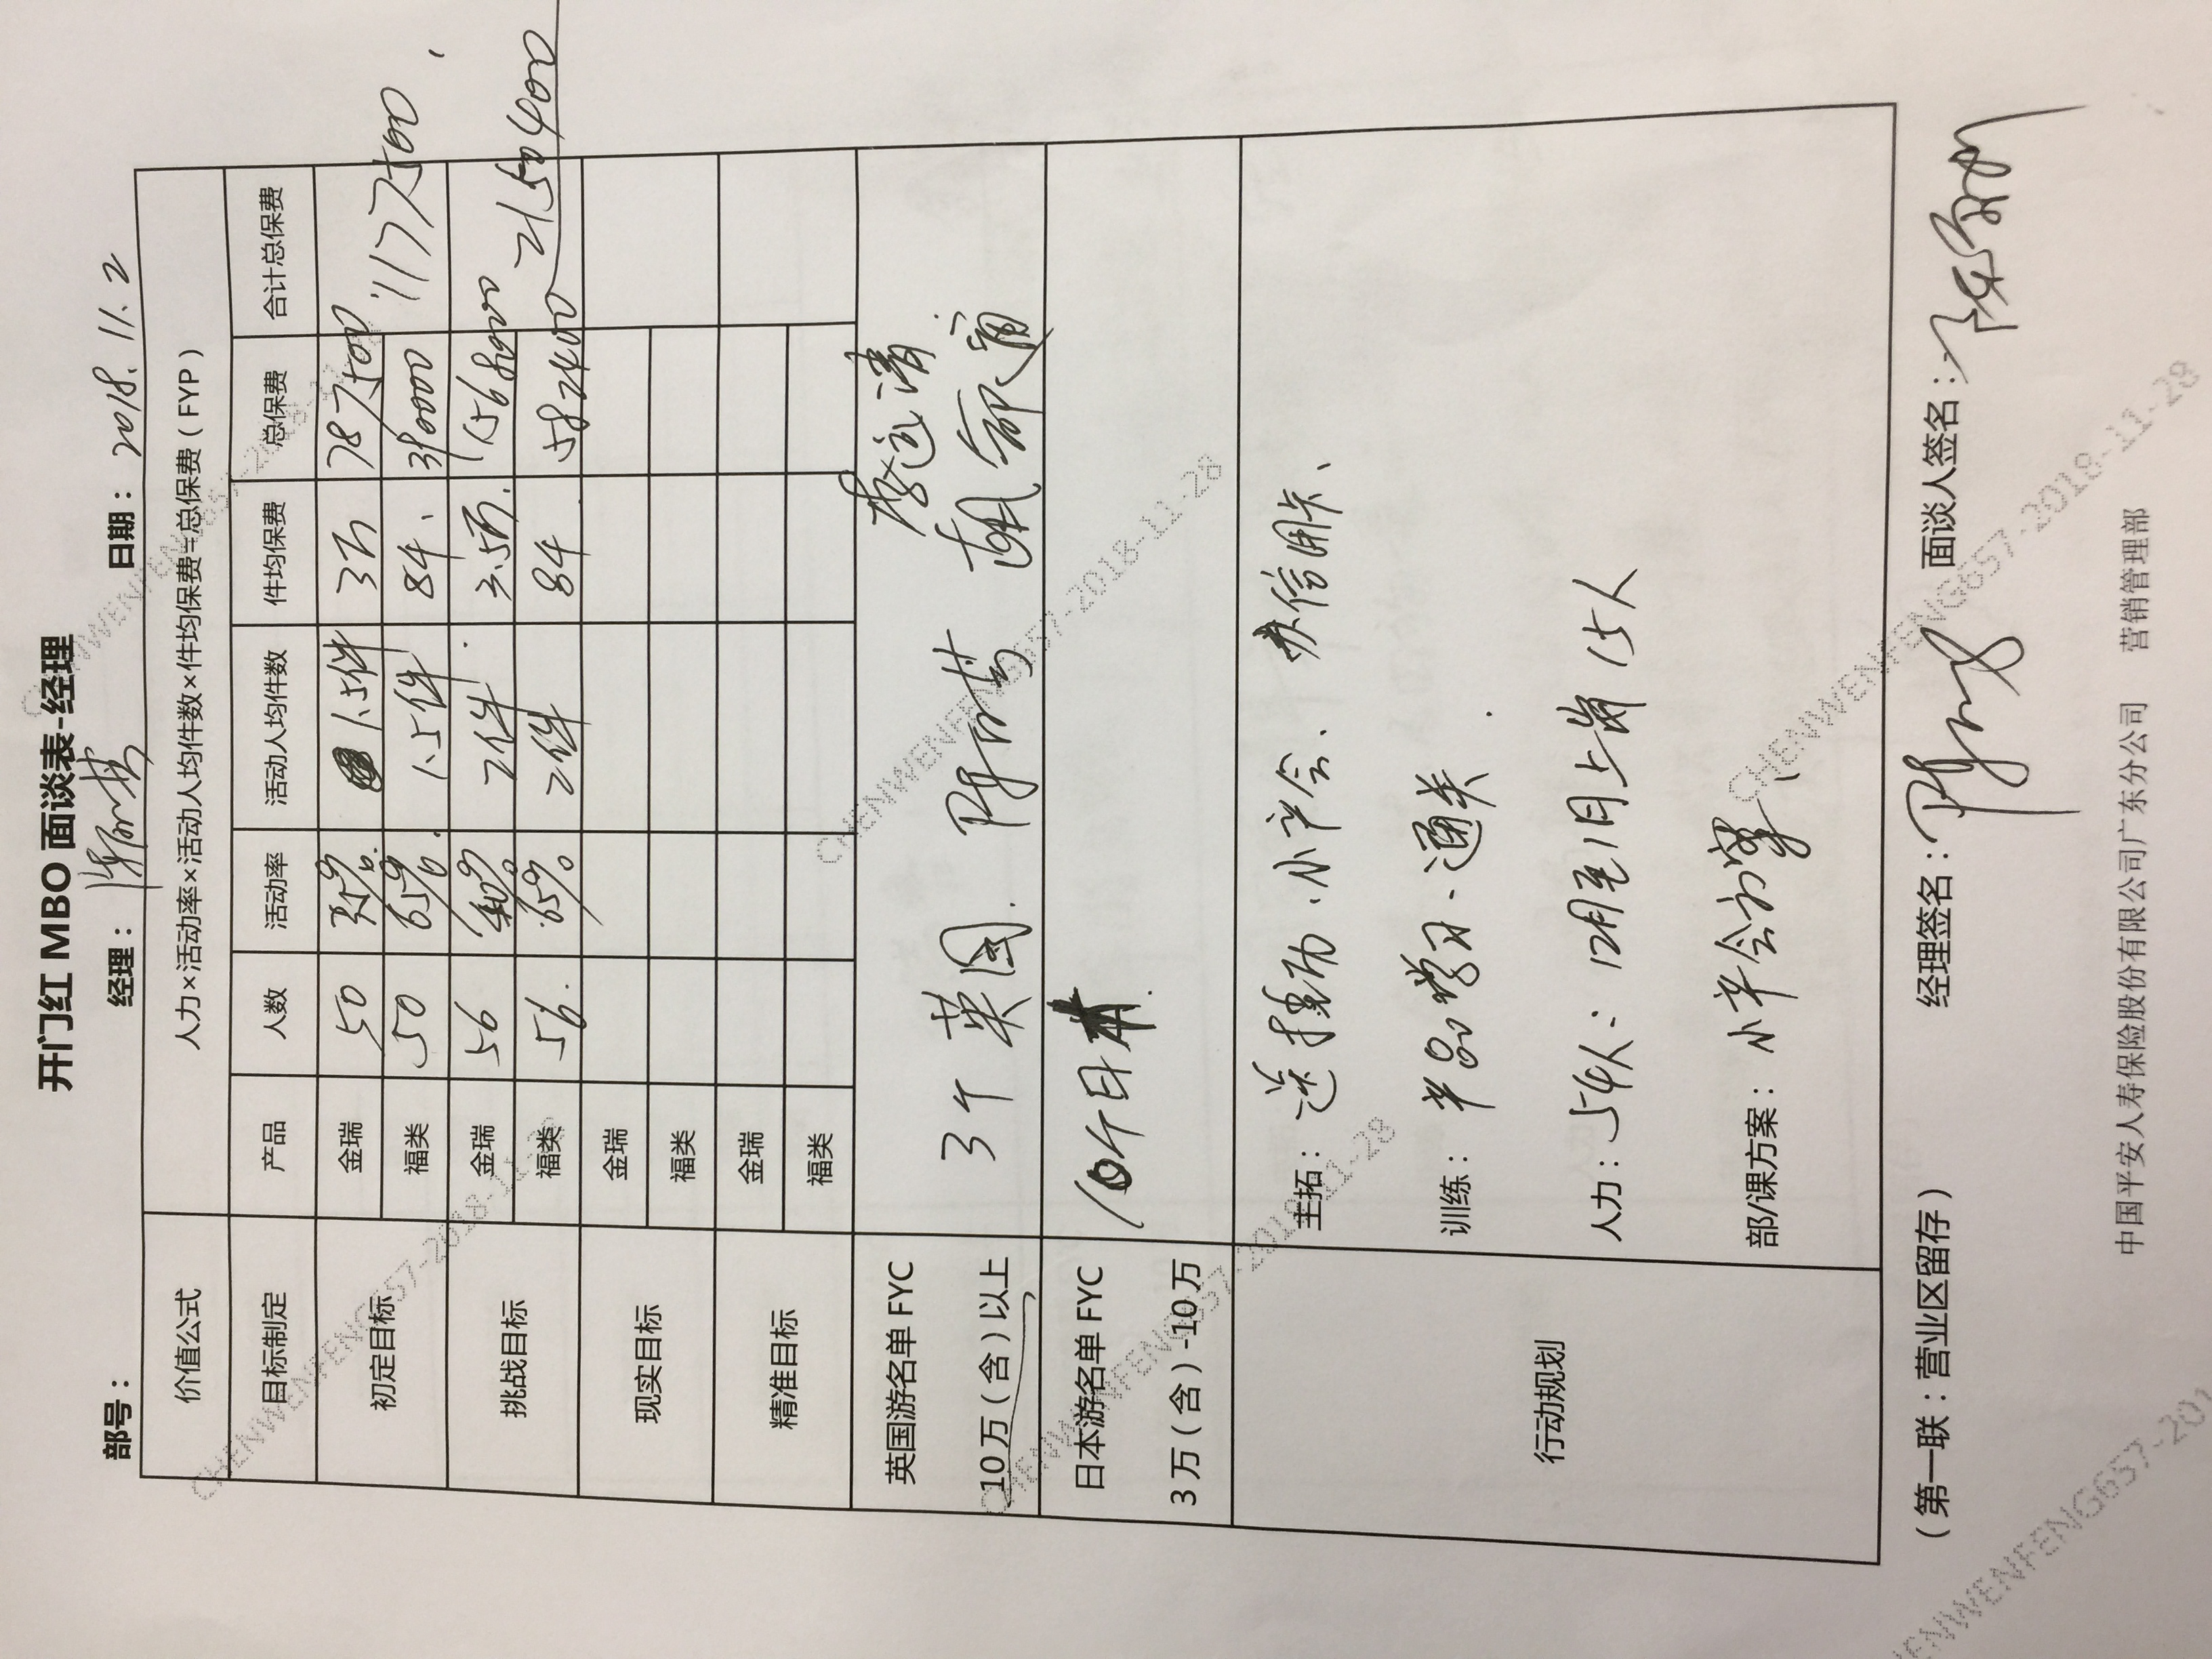 开门红 MBO 面谈表-经理
部号： 经理： 日期：2018.11.2
价值公式 人力×活动率×活动人均件数×件均保费=总保费（FYP）
目标制定 产品 人数 活动率 活动人均件数 件均保费 总保费 合计总保费
初定目标 金瑞 50 35% 1.5件 3万 787500 1177500
福类 50 65% 1.5件 8千 390000
挑战目标 金瑞 56 40% 2件 3.5万 1568000 2150400
福类 56 65% 2件 8千 582400
现实目标 金瑞
福类
精准目标 金瑞
福类
英国游名单 FYC
10万（含）以上
3个英国
日本游名单 FYC
3万（含）-10万
10个日本
行动规划
主拓： 小产会、办信用卡、
训练： 产品学习、通关
人力：54人：12月至1月上岗15人
部/课方案：小产会
（第一联：营业区留存） 经理签名： 面谈人签名：
中国平安人寿保险股份有限公司广东分公司 营销管理部
CHENWENFENG657-2018-11-28